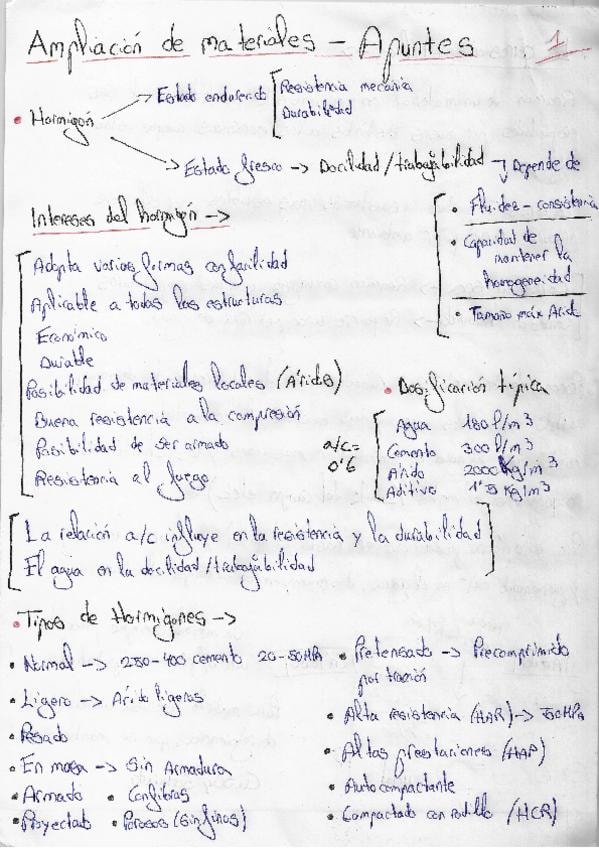 Ampliación de materiales - Apuntes 1
• Hormigón → Estado endurecido [Resistencia mecánica
Durabilidad
→ Estado fresco → Docilidad/trabajabilidad → Depende de
• Fluidez - consistencia
• Capacidad de
mantener la
homogeneidad
• Tamaño máx Árido
Intereses del hormigón →
Adopta varias formas con facilidad
Aplicable a todas las estructuras
Económico
Durable
Posibilidad de materiales locales (Áridos)
Buena resistencia a la compresión
Posibilidad de ser armado
Resistencia al fuego
• Dosificación típica
a/c =
0'6
Agua 180 l/m3
Cemento 300 l/m3
Árido 2000 Kg/m3
Aditivo 1'5 Kg/m3
La relación a/c influye en la resistencia y la durabilidad
El agua en la docilidad/trabajabilidad
• Tipos de Hormigones →
• Normal → 250-400 cemento 20-50MPa
• Ligero → Árido ligeros
• Pesado
• En masa → Sin Armadura
• Armado • Con fibras
• Proyectado • Porosos (sin finos)
• Pretensado → Precomprimido
por tracción
• Alta resistencia (HAR) → 50MPa
• Altas prestaciones (HAP)
• Autocompactante
• Compactado con rodillo (HCR)